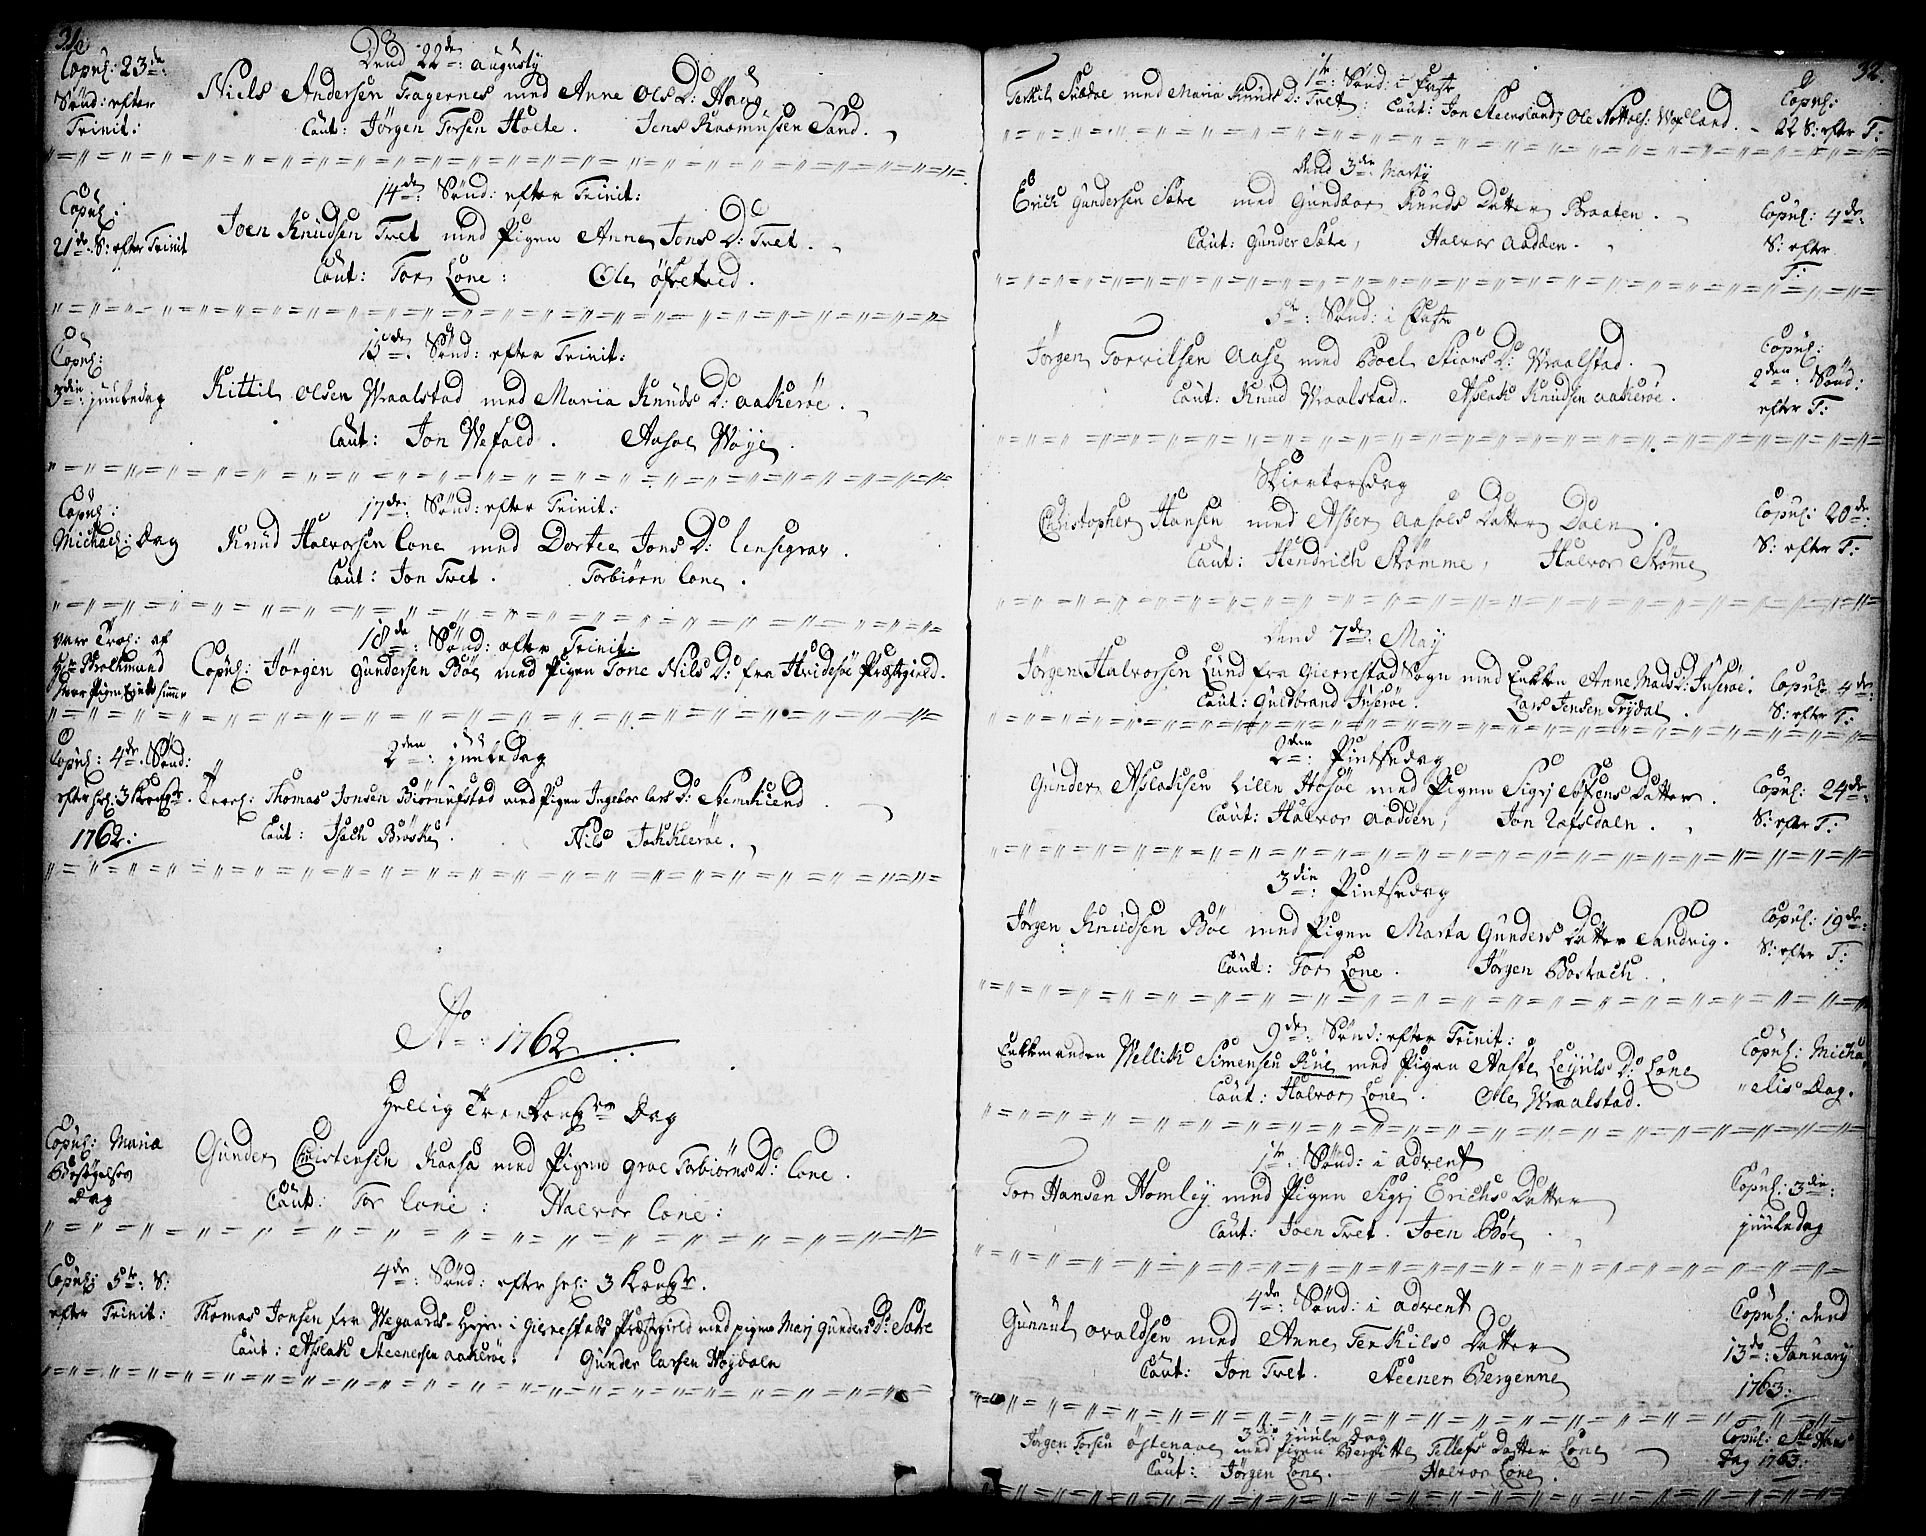 Copul: 23de
Sønd: efter
Trinit:
Dend 22de: Augusty
Niels Andersen Fagernes med Anne Ols D: Haug
Caut: Jørgen Torsen Holte. Jens Rasmussen Sand.
Copul:
21de S: efter Trinit
14de: Sønd: efter Trinit:
Joen Knudsen Tvet med Pigen Anne Jons D: Tvet.
Caut: Tor Lone: Ole Øfvetved.
Copul:
3die juuledag
15de: Sønd: efter Trinit:
Kittil Olsen Vraalstad med Maria Knuds D: Aakerøe.
Caut: Jon Wefald. Aasol Woje.
Copul:
Michael: Dag
17de: Sønd: efter Trinit:
Knud Halvorsen Lone med Dortee Jons D: Lensegrav.
Caut: Jon Tvet. Torbiørn Lone.
18de: Sønd: efter Trinit:
Copul: Jørgen Gundersen Bøe med Pigen Tone Nils D: fra Hvidesøe Præstegield.
Copul: 4de Sønd:
efter hel: 3 Kong:
1762:
2den: juuledag
Trol: Thomas Jonsen Biørnufstad med Pigen Ingebor Lars D: Stemtvend
Caut: Isach Brøske. Nils Jakklerøe.
Ao: 1762
Hellig Tre Konger Dag
Copul: Maria
Besøgelses
Dag
Gunder Christensen Kaasa med Pigen Groe Torbiørns D: Lone.
Caut: Tor Lone: Halvor Lone:
Copul: 5te: S:
efter Trinit:
4de: Sønd: efter hel: 3 Kong:
Thomas Jonsen fra Wegaards-Heien i Gierrestads Præstegield med pigen Marj Gunders D: Satre
Caut: Aslak Steenersen Aakerøe: Gunder Larsen Høydaln
32.
1te: Sønd: i Faste
Terkil Susdal med Maria Knuds D: Tvet: Caut: Jon Steensland, Ole Nottols: Wefland.
Copul:
22 S: efter T:
Dend 3de: Marty
Erich Gundersen Satre med Gundvor Knuds Datter Braaten.
Caut: Gunder Satre, Halvor Aadden.
Copul: 4de
S: efter
T:
5te: Sønd: i Faste
Jørgen Torvilsen Aase med Boel Stians D: Wraalstad.
Caut: Knud Wraalstad. Aslak Knudsen Aakerøe.
Copul:
2den: Sønd:
efter T:
Skiertorsdag
Christopher Hansen med Asber Aasols Datter Daln.
Caut: Hendrich Strømme, Halvor Strømme
Copul: 20de
S: efter T:
Dend 7de: May
Jørgen Halvorsen Lund fra Gierrestad Sogn med Enken Anne Mads D: Juserøe:
Caut: Guldbrand Juserøe. Lars Jensen Frydal.
Copul: 4de
S: efter T:
2den: Pintsedag
Gunder Aslaksen Lille Hosøe med Pigen Sigrj Esfens Datter.
Caut: Halvor Aadden, Jon Rafsdaln.
Copul: 24de
S: efter T:
3die: Pintsedag
Jørgen Knudsen Bøe med Pigen Marta Gunders Datter Sandvig.
Caut: Tor Lone. Jørgen Bostrach.
Copul: 19de:
S: efter T:
9de: Sønd: efter Trinit:
Enkemanden Wellik Simensen Rue med Pigen Aaste Leyuls D: Lone
Caut: Halvor Lone. Ole Wraalstad.
Copul: Micha
elis Dag.
1te: Sønd: i Advent
Tor Hansen Homley med Pigen Sigrj Erichs Datter
Caut: Joen Tvet. Joen Bøe
Copul: 3die:
juuledag
4de: Sønd: i Advent
Gunnul Ovaldsen med Anne Terkils Datter
Caut: Jon Tvet. Steener Bergenne
Copul: dend
13de: January
1763:
3die juule Dag
Jørgen Torsen Østenaae med Pigen Bergitte Tellefs Datter Lone
Caut: Jørgen Lone. Halvor Lone.
Copul: Ste Hans
Dag 1763: